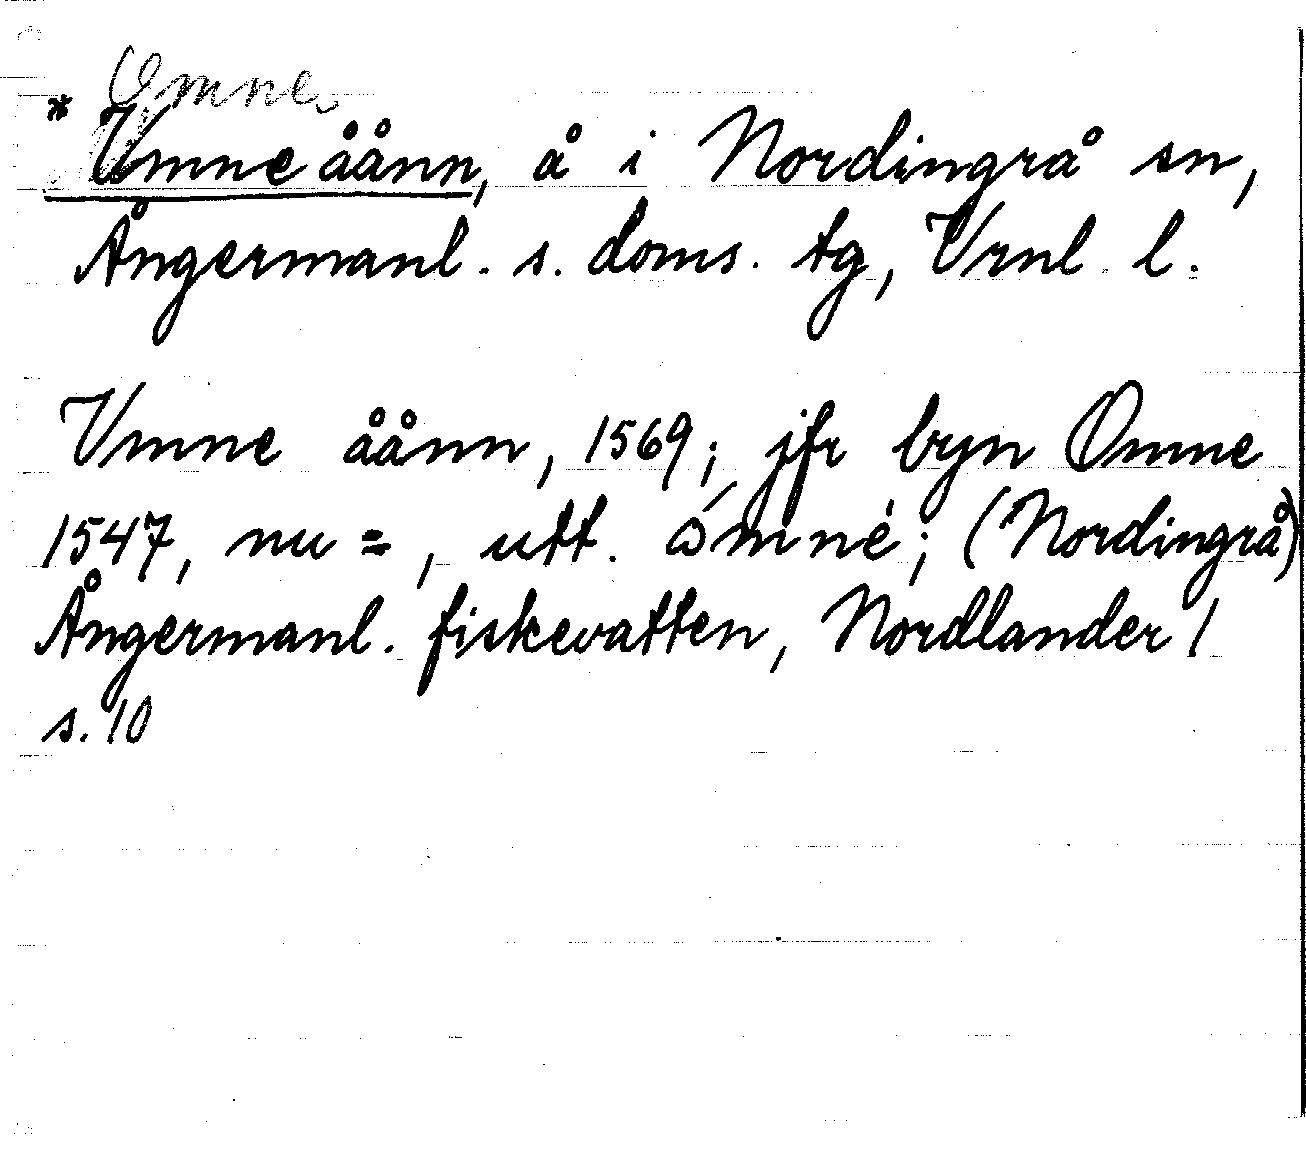 Omne
* Vmne åånn, å i Nordingrå sn,
Ångermanl. s. doms. tg, Vrnl. l.
Vmne åånn, 1569; jfr byn Omne
1547, nu =, utt. ómné; (Nordingrå)
Ångermanl. fiskevatten, Nordlander /
s. 10